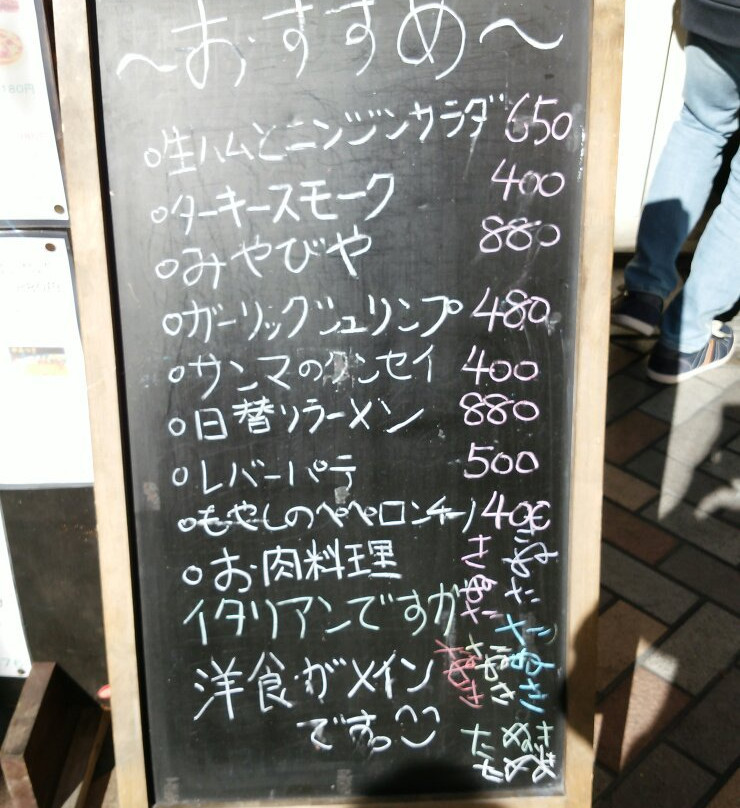 ～おすすめ～
○生ハムとニンジンサラダ 650
○ターキースモーク 400
○みやびや 880
○ガーリックシュリンプ 480
○サンマのクンセイ 400
○日替りラーメン 880
○レバーパテ 500
○もやしのペペロンチーノ 400
○お肉料理
イタリアンですが
洋食がメイン
ですっ